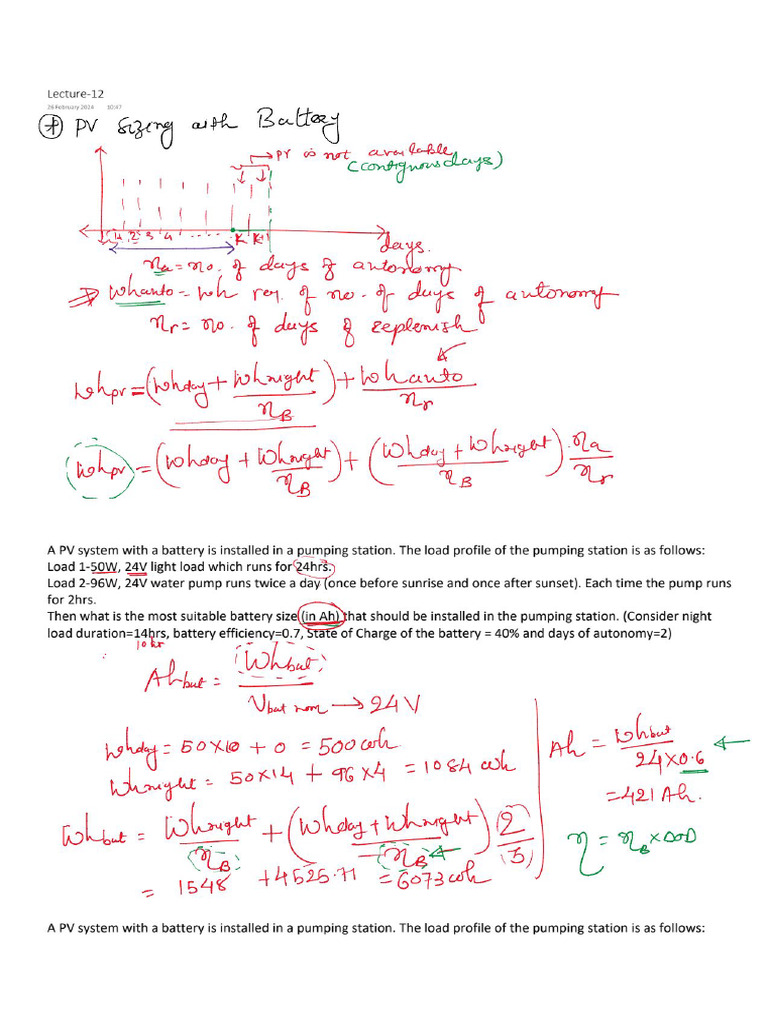 Lecture-12
26 February 2024 10:47
* PV Sizing with Battery
→ PV is not available
(contiguous days)
1 2 3 4 ..... K K+1
days.
na = no. of days of autonomy
⇒ Whauto = Wh req. of no. of days of autonomy
nr = no. of days of replenish
Whpv = (Whday + Whnight/ηB) + Whauto/nr
Whpv = (Whday + Whnight/ηB) + (Whday + Whnight/ηB) · na/nr
A PV system with a battery is installed in a pumping station. The load profile of the pumping station is as follows:
Load 1-50W, 24V light load which runs for 24hrs.
Load 2-96W, 24V water pump runs twice a day (once before sunrise and once after sunset). Each time the pump runs
for 2hrs.
Then what is the most suitable battery size (in Ah) that should be installed in the pumping station. (Consider night
load duration=14hrs, battery efficiency=0.7, State of Charge of the battery = 40% and days of autonomy=2)
10 hr
Ahbat = Whbat / Vbat nom → 24V
Whday = 50×10 + 0 = 500wh
Whnight = 50×14 + 96×4 = 1084 wh
Whbat = Whnight/ηB + (Whday + Whnight/ηB) 2/(5)
= 1548 + 4525.71 = 6073wh
Ah = Whbat / 24×0.6 ←
= 421 Ah.
η = ηB × DOD
A PV system with a battery is installed in a pumping station. The load profile of the pumping station is as follows: